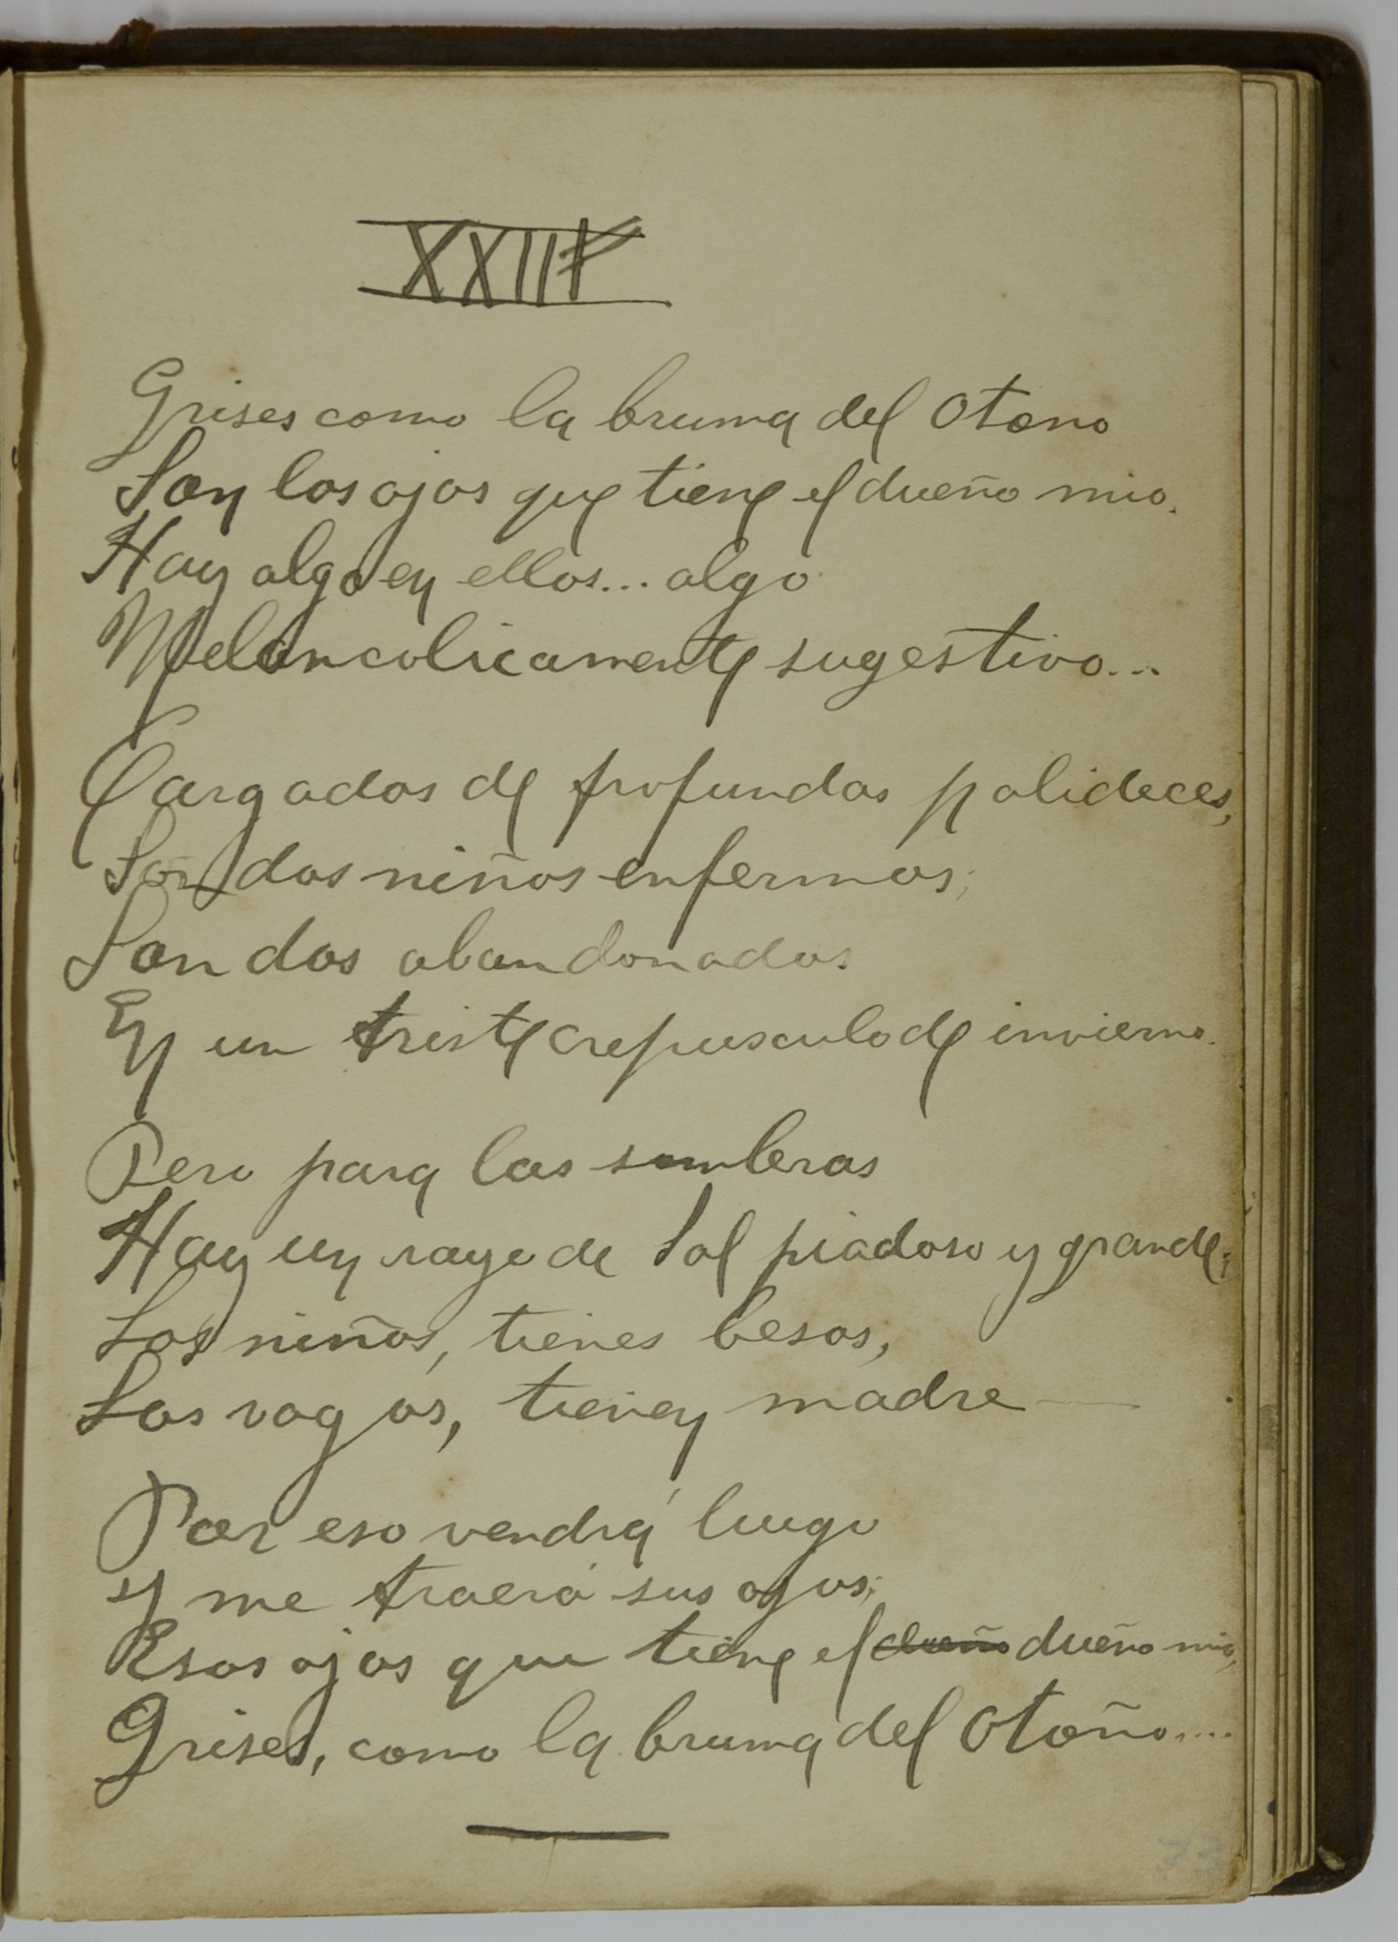 XXIII
Grises como la bruma del Otono
Son los ojos que tiene el dueño mio.
Hay algo en ellos... algo
Melancolicamente sugestivo...
Cargados de profundas palideces,
Son dos niños enfermos;
Son dos abandonados
En un triste crepusculo de invierno.
Pero para las sombras
Hay un rayo de Sol piadoso y grande;
Los niños, tienes besos,
Los vagos, tienen madre —
Por eso vendrá luego
Y me traerá sus ojos;
Esos ojos que tiene el dueño dueño mio,
Grises, como la bruma del Otoño....
73